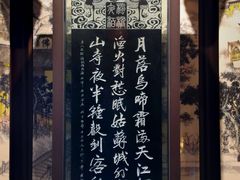 月落烏啼霜滿天江
漁火對愁眠姑蘇城外
山寺夜半鐘聲到客